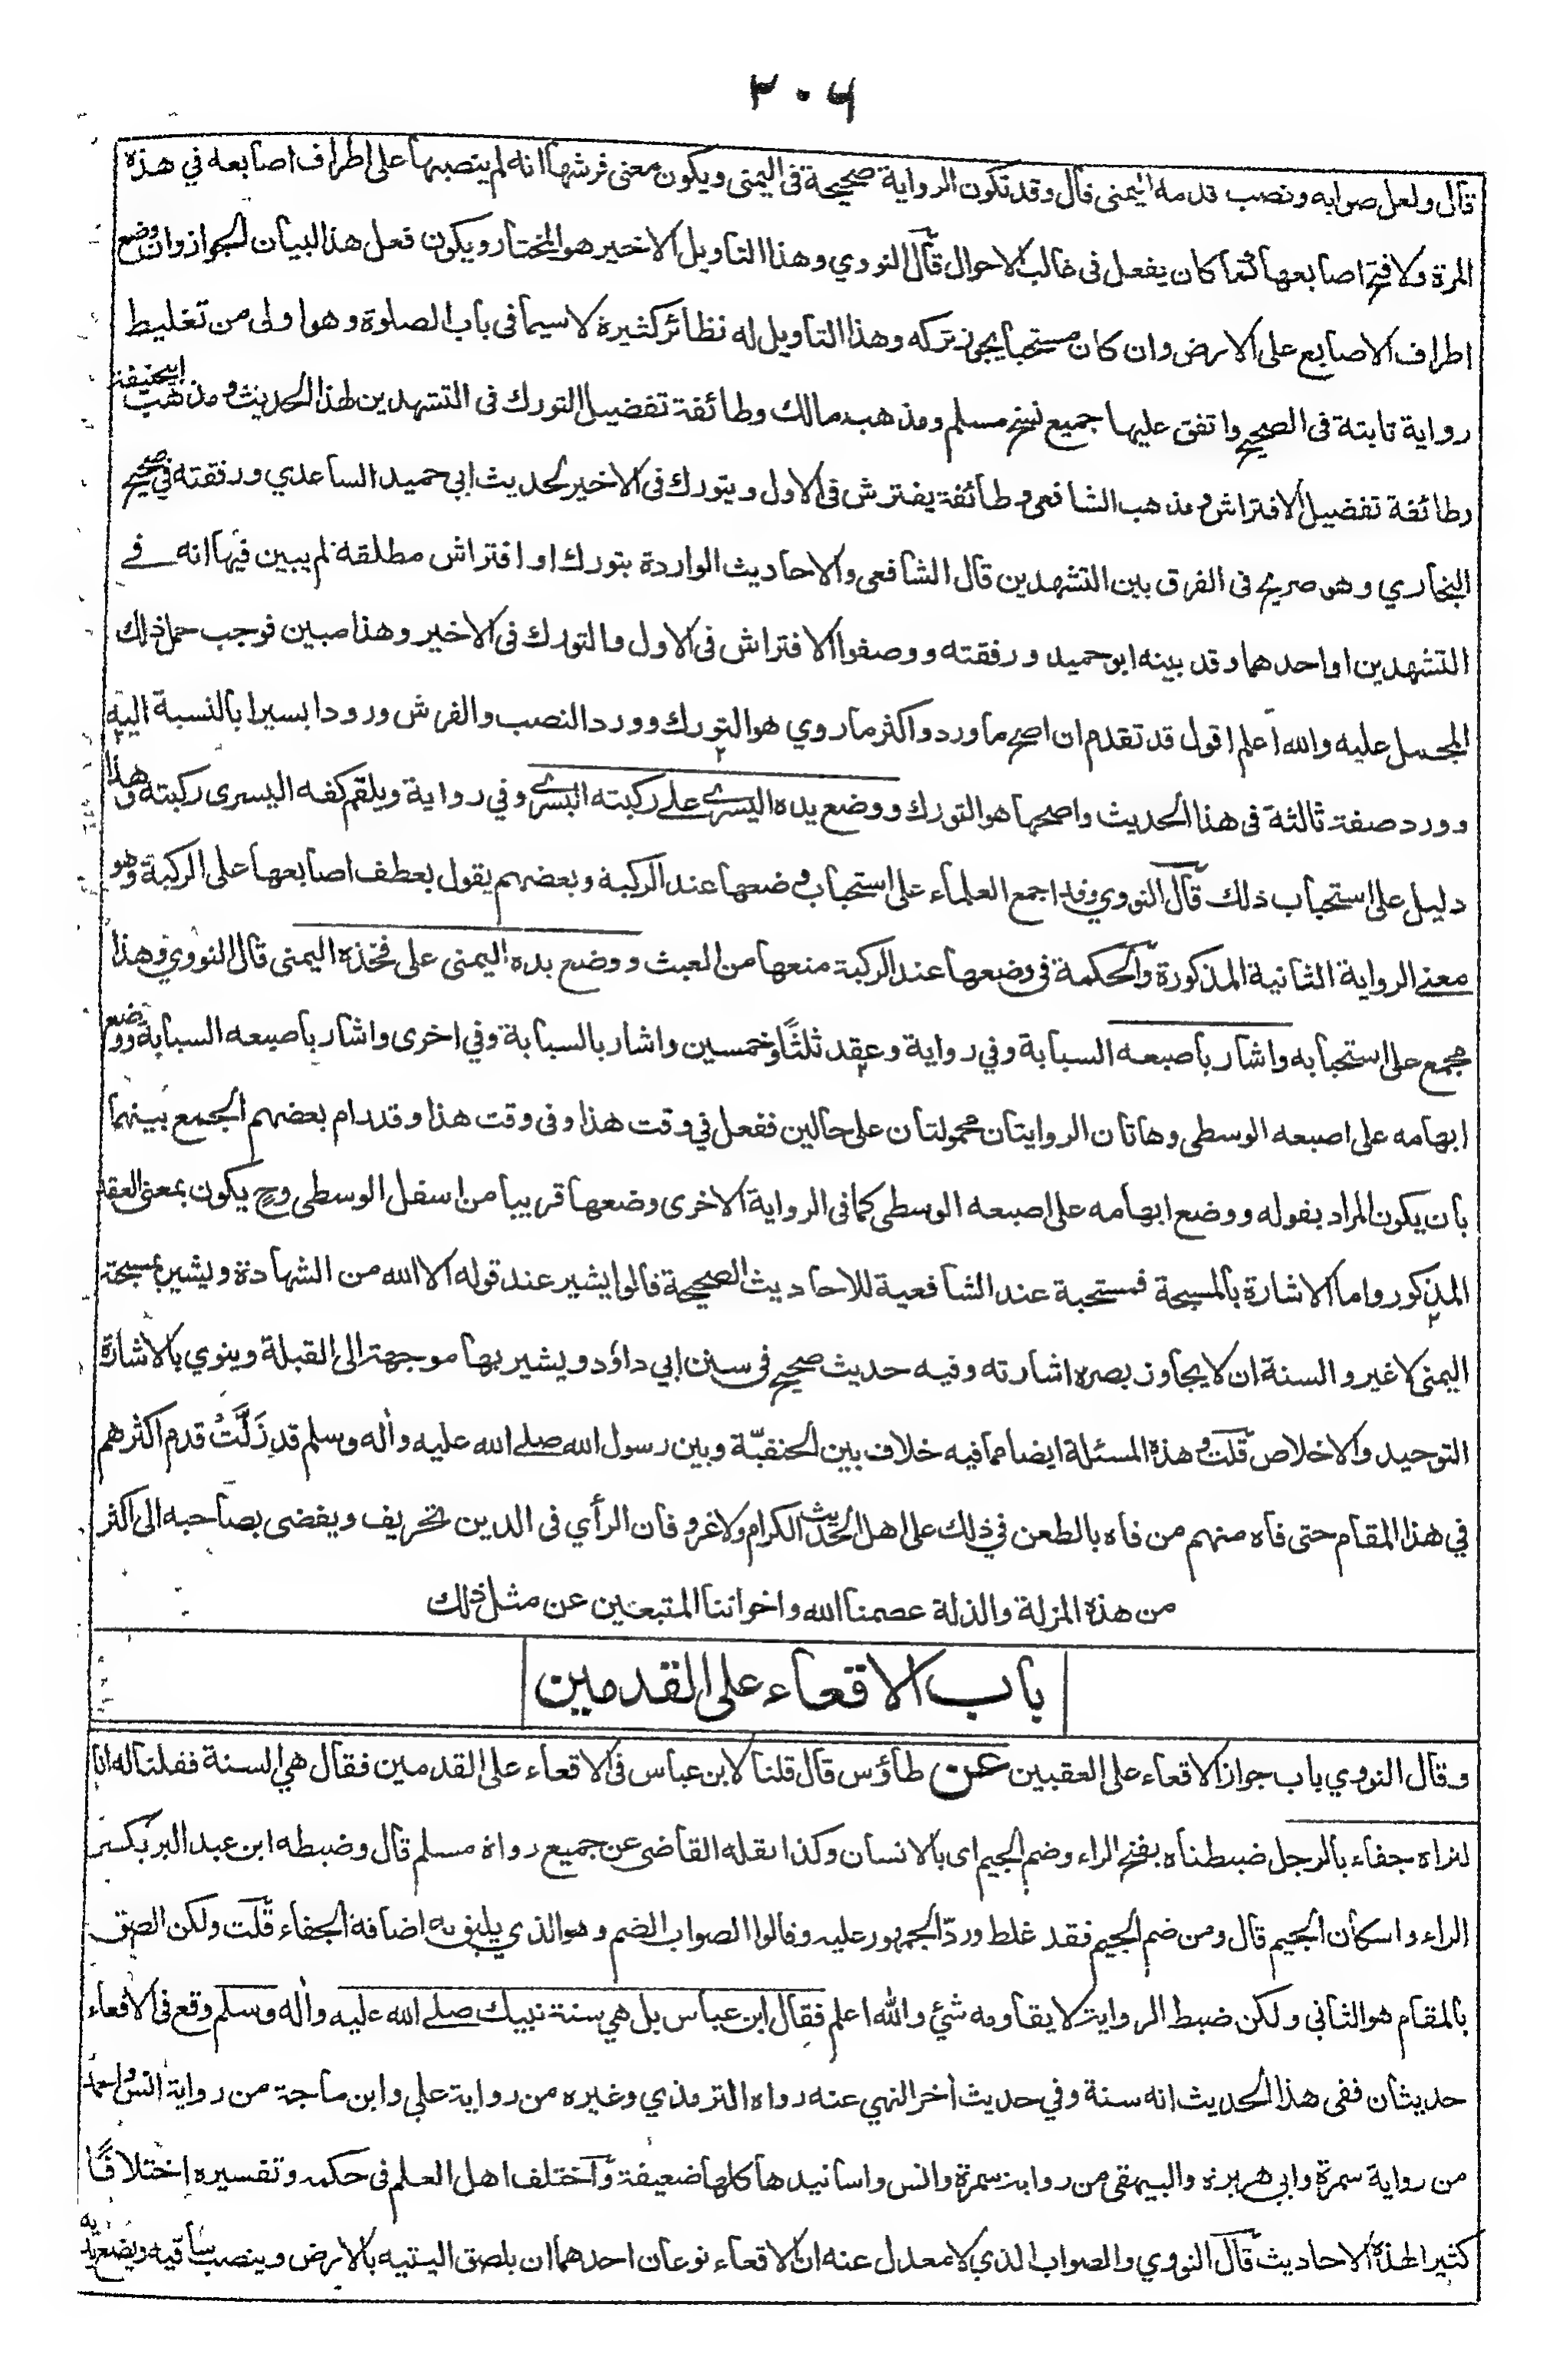 ٢٠٦
قال ولعل صوابه ونصب قدمه اليمنى قال وقد تكون الرواية صحيحة فى اليمنى ويكون معنى فرشها انه لم ينصبها على اطراف اصابعه في هذه
المرة ولا فتح اصابعها كما كان يفعل فى غالب الاحوال قال النووي وهذا التاويل الاخير هو المختار ويكون فعل هذا لبيان الجواز وان وضع
اطراف الاصابع على الارض وان كان مستحبا يجوز تركه وهذا التاويل له نظائر كثيرة لا سيما فى باب الصلوة وهو اولى من تغليط
رواية ثابتة فى الصحيح واتفق عليها جميع نسخ مسلم ومذهب مالك وطائفة تفضيل التورك فى التشهدين لهذا الحديث ومذهب ابيحنيفة
وطائفة تفضيل الافتراش ومذهب الشافعي وطائفة يفترش فى الاول ويتورك فى الاخير لحديث ابي حميد الساعدي ورفقته في صحيح
البخاري وهو صريح فى الفرق بين التشهدين قال الشافعى والاحاديث الواردة بتورك او افتراش مطلقة لم يبين فيها انه فے
التشهدين او احدهما وقد بينه ابو حميد ورفقته ووصفوا الافتراش فى الاول والتورك فى الاخير وهذا مبين فوجب حمل ذلك
المجمل عليه والله اعلم اقول قد تقدم ان اصح ما ورد واكثر ما روي هو التورك وورد النصب والفرش ورودا يسيرا بالنسبة اليه
وورد صفة ثالثة فى هذا الحديث واصحها هو التورك ووضع يده اليسرے علے ركبته اليسرے وفي رواية ويلقم كفه اليسرى ركبته وهذا
دليل على استحباب ذلك قال النووي وقد اجمع العلماء على استحباب وضعها عند الركبة وبعضهم يقول بعطف اصابعها على الركبة وهو
معنے الرواية الثانية المذكورة والحكمة فى وضعها عند الركبة منعها من العبث ووضع يده اليمنى على فخذه اليمنى قال النووي وهذا
مجمع على استحبابه واشار باصبعه السبابة وفي رواية وعقد ثلثًا وخمسين واشار بالسبابة وفي اخرى واشار باصبعه السبابة ووضع
ابهامه على اصبعه الوسطى وهاتان الروايتان محمولتان على حالين ففعل في وقت هذا وفى وقت هذا وقد رام بعضهم الجمع بينهما
بان يكون المراد بقوله ووضع ابهامه على اصبعه الوسطى كما فى الرواية الاخرى وضعها قريبا من اسفل الوسطى وح يكون بمعنى العقد
المذكور واما الاشارة بالمسبحة فمستحبة عند الشافعية للاحاديث الصحيحة قالوا يشير عند قوله الا الله من الشهادة ويشير بمسبحة
اليمنى لا غير والسنة ان لا يجاوز بصره اشارته وفيه حديث صحيح فى سنن ابي داؤد ويشير بها موجهة الى القبلة وينوي بالاشارة
التوحيد والاخلاص قلت وهذه المسئلة ايضا مما فيه خلاف بين الحنفيّة وبين رسول الله صلے الله عليه واٰله وسلم قد زَلَّتْ قدم اكثرهم
في هذا المقام حتى فاه منهم من فاه بالطعن في ذلك على اهل الحديث الكرام ولا غرو فان الرأي فى الدين تحريف ويفضى بصاحبه الى اكثر
من هذه المزلة والذلة عصمنا الله واخواننا المتبعين عن مثل ذلك
باب الاقعاء على القدمين
وقال النووي باب جواز الاقعاء على العقبين عن طاؤس قال قلنا لابن عباس فى الاقعاء على القدمين فقال هي السنة فقلنا له انا
لنراه جفاء بالرجل ضبطناه بفتح الراء وضم الجيم اى بالانسان وكذا نقله القاضى عن جميع رواة مسلم قال وضبطه ابن عبد البر بكسر
الراء واسكان الجيم قال ومن ضم الجيم فقد غلط وردّ الجمهور عليه وقالوا الصواب الضم وهو الذي يليق به اضافة الجفاء قلت ولكن الصق
بالمقام هو الثاني ولكن ضبط الرواية لا يقاومه شئ والله اعلم فقال ابن عباس بل هي سنة نبيك صلے الله عليه واٰله وسلم وقع فى الاقعاء
حديثان ففى هذا الحديث انه سنة وفي حديث اٰخر النهي عنه رواه الترمذي وغيره من رواية علي وابن ماجة من رواية انس واحمد
من رواية سمرة وابي هريرة والبيهقى من رواية سمرة وانس واسانيدها كلها ضعيفة واختلف اهل العلم فى حكمه وتفسيره اختلافًا
كثيرا لهذه الاحاديث قال النووي والصواب الذي لا معدل عنه ان الاقعاء نوعان احدهما ان يلصق اليتيه بالارض وينصب ساقيه ويضع يديه